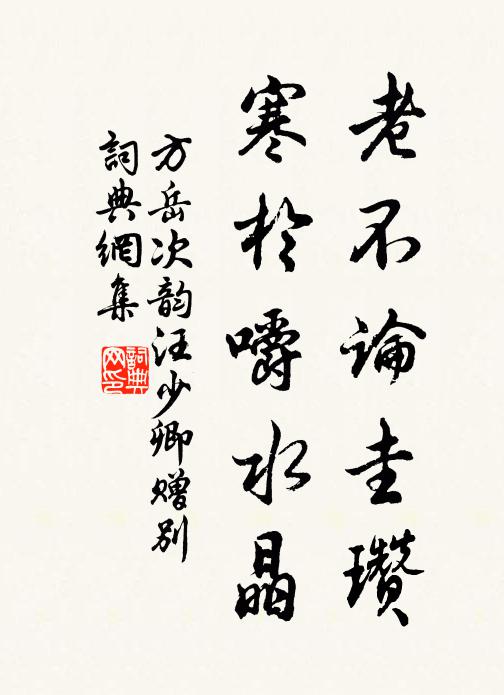 老不論圭瓚
寒於嚼水晶
方岳次韵汪少卿赠别
詞典網集
詞典网印